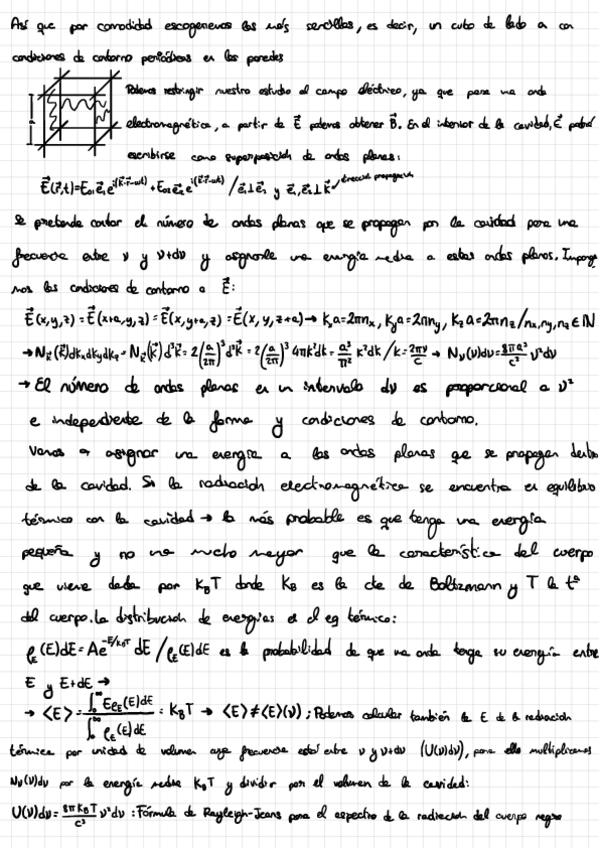 Así que por comodidad escogeremos las más sencillas, es decir, un cubo de lado a con
condiciones de contorno periódicas en las paredes
Podemos restringir nuestro estudio al campo eléctrico, ya que para una onda
a
electromagnética, a partir de E⃗ podemos obtener B⃗. En el interior de la cavidad, E⃗ podrá
escribirse como superposición de ondas planas:
E⃗(r⃗,t)=E₀₁e⃗₁e^{i(k⃗·r⃗-ωt)}+E₀₂e⃗₂e^{i(k⃗·r⃗-ωt)} / e⃗₁⊥e⃗₂ y e⃗₁,e⃗₂⊥k⃗ → dirección propagación
Se pretende contar el número de ondas planas que se propagan por la cavidad para una
frecuencia entre ν y ν+dν y asignarle una energía media a estas ondas planas. Impong
mos las condiciones de contorno a E⃗:
E⃗(x,y,z)=E⃗(x+a,y,z)=E⃗(x,y+a,z)=E⃗(x,y,z+a)→ Kₓa=2πnₓ, K_y a=2πn_y, K_z a=2πn_z / nₓ,n_y,n_z∈ℕ
→N_k⃗(k⃗)dkₓdk_ydk_z=N_k⃗(k⃗)d³k⃗=2(a/2π)³d³k⃗=2(a/2π)³4πk²dk=a³/π² k²dk / k=2πν/c → N_ν(ν)dν=8πa³/c³ ν²dν
→ El número de ondas planas en un intervalo dν es proporcional a ν²
e independiente de la forma y condiciones de contorno.
Vamos a asignar una energía a las ondas planas que se propagan dentro
de la cavidad. Si la radiación electromagnética se encuentra en equilibrio
térmico con la cavidad → lo más probable es que tenga una energía
pequeña y no una mucho mayor que la característica del cuerpo
que viene dada por K_BT donde K_B es la cte de Boltzmann y T la tª
del cuerpo. La distribución de energías en el eq térmico:
ρ_E(E)dE=Ae^{-E/K_BT}dE / ρ_E(E)dE es la probabilidad de que una onda tenga su energía entre
E y E+dE →
→ <E>=∫₀^∞Eρ_E(E)dE/∫₀^∞ρ_E(E)dE=K_BT → <E>≠<E>(ν); Podemos calcular también la E de la radiación
térmica por unidad de volumen cuya frecuencia está entre ν y ν+dν (U(ν)dν), para ello multiplicamos
N_ν(ν)dν por la energía media K_BT y dividir por el volumen de la cavidad:
U(ν)dν=8πK_BT/c³ ν²dν: Fórmula de Rayleigh-Jeans para el espectro de la radiación del cuerpo negro